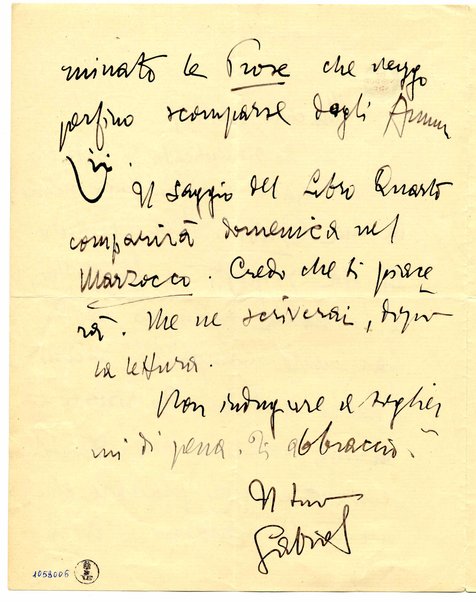 minato le Prose che veggo
perfino scomparse dagli Annun
zi.
Il saggio del Libro Quarto
comparirà domenica nel
Marzocco. Credo che ti piace
rà. Me ne scriverai, dopo
la lettura.
Non indugiare a toglier
mi di pena. Ti abbraccio.
Il tuo
Gabriel
1058006